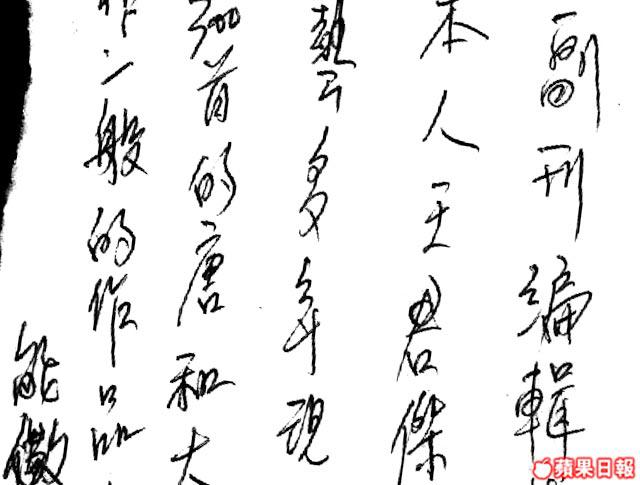 副刊編輯
本人王君傑
多年現
首的唐和大
一般的作品
能徵
蘋果日報